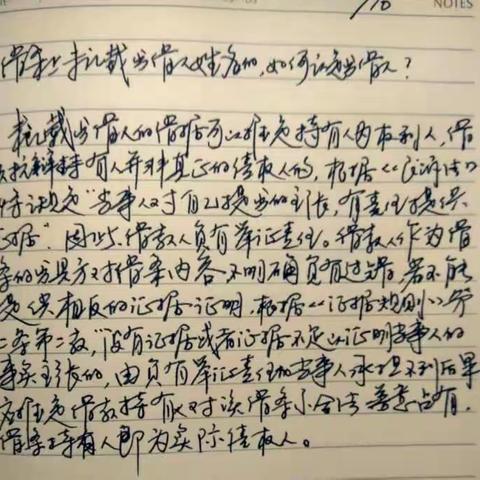 NOTES
借条上未记载出借人姓名的,如何认定出借人?
未记载出借人的借据可以推定持有人为权利人,借
抗辩持有人并非真正的债权人的,根据《民诉法》
规定"当事人对自己提出的主张,有责任提供
证据"。因此,借款人负有举证责任。借款人作为借
条的出具方对借条内容不明确负有过错,若不能
提供相反的证据证明,根据《证据规则》第
二条第二款,"没有证据或者证据不足以证明当事人的
事实主张的,由负有举证责任的当事人承担不利后果
应推定借款持有人对该借条系合法善意占有,
借条持有人即为实际债权人。